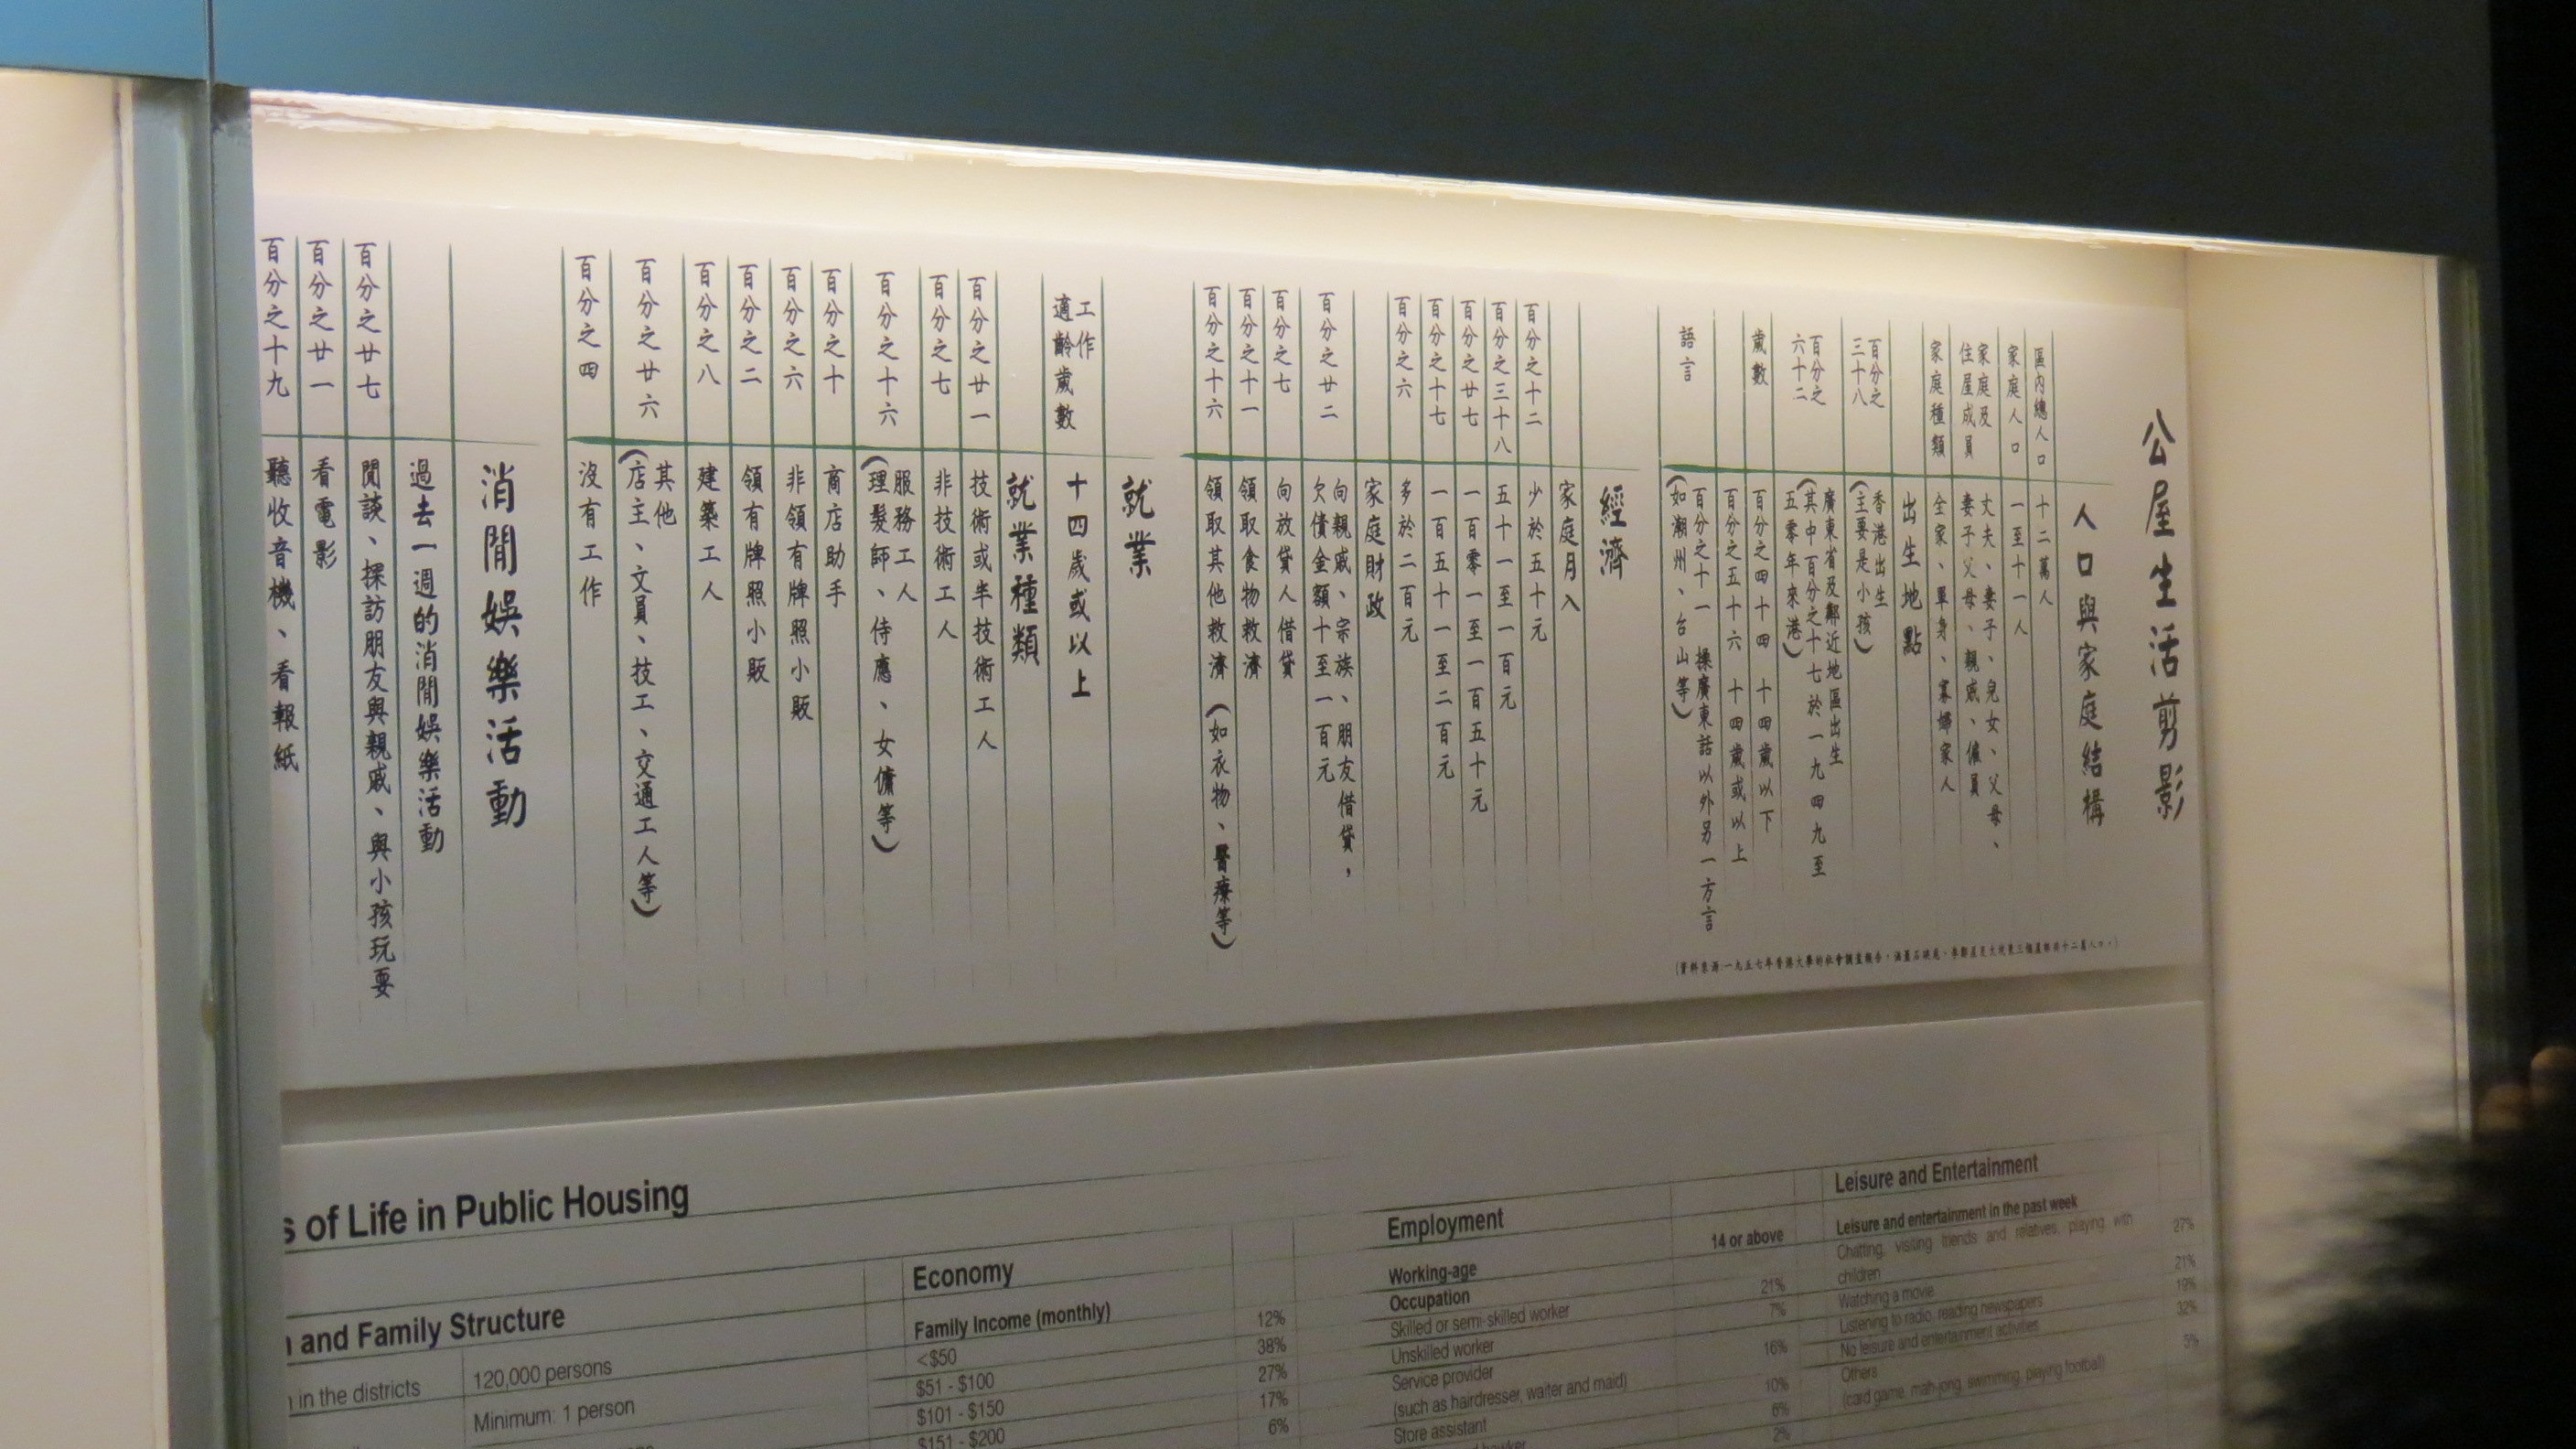 公屋生活剪影
人口與家庭結構
區內總人口 十二萬人
家庭人口 一至十一人
家庭及住屋成員 丈夫、妻子、兒女、父母、
妻子父母、親戚、僱員
家庭種類 全家、單身、寡婦家人
出生地點
百分之三十八 香港出生
(主要是小孩)
百分之六十二 廣東省及鄰近地區出生
(其中百分之十七於一九四九至
五零年來港)
歲數 百分之四十四 十四歲以下
百分之五十六 十四歲或以上
語言 百分之十一 操廣東話以外另一方言
(如潮州、台山等)
(資料來源:一九五七年香港大學的社會調查報告,涵蓋石硤尾、李鄭屋及大坑東三個屋邨共十二萬人口。)
經濟
家庭月入
百分之十二 少於五十元
百分之三十八 五十一至一百元
百分之廿七 一百零一至一百五十元
百分之十七 一百五十一至二百元
百分之六 多於二百元
家庭財政
百分之廿二 向親戚、宗族、朋友借貸,
欠債金額十至一百元
百分之七 向放貸人借貸
百分之十一 領取食物救濟
百分之十六 領取其他救濟(如衣物、醫療等)
就業
工作適齡歲數 十四歲或以上
就業種類
百分之廿一 技術或半技術工人
百分之七 非技術工人
百分之十六 服務工人
(理髮師、侍應、女傭等)
百分之十 商店助手
百分之六 非領有牌照小販
百分之二 領有牌照小販
百分之八 建築工人
百分之廿六 其他
(店主、文員、技工、交通工人等)
百分之四 沒有工作
消閒娛樂活動
過去一週的消閒娛樂活動
百分之廿七 閒談、探訪朋友與親戚、與小孩玩耍
百分之廿一 看電影
百分之十九 聽收音機、看報紙
of Life in Public Housing
and Family Structure
in the districts 120,000 persons
Minimum: 1 person
Economy
Family Income (monthly)
<$50 12%
$51 - $100 38%
$101 - $150 27%
$151 - $200 17%
6%
Employment
Working-age 14 or above
Occupation
Skilled or semi-skilled worker 21%
Unskilled worker 7%
Service provider 16%
(such as hairdresser, waiter and maid)
Store assistant 10%
6%
2%
Leisure and Entertainment
Leisure and entertainment in the past week
Chatting, visiting friends and relatives, playing with 27%
children
Watching a movie 21%
Listening to radio, reading newspapers 19%
No leisure and entertainment activities 32%
Others 5%
(card game, mah-jong, swimming, playing football)